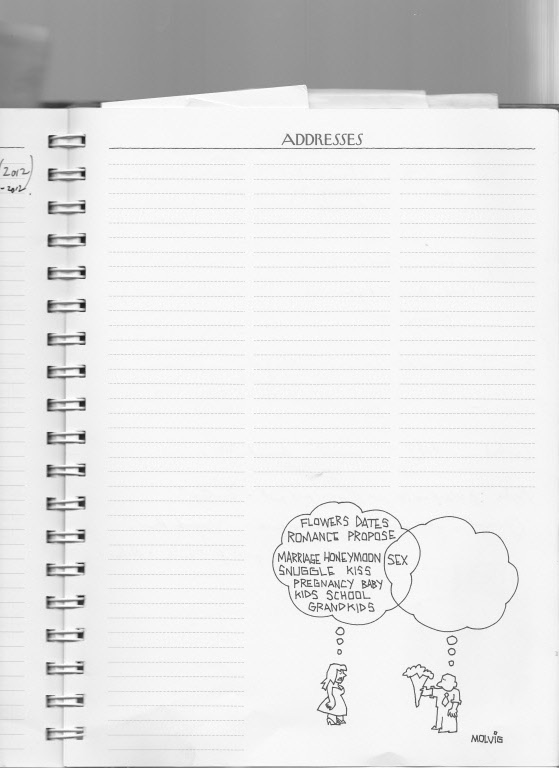 ADDRESSES
(2012)
-2012.
FLOWERS DATES
ROMANCE PROPOSE
MARRIAGE HONEYMOON SEX
SNUGGLE KISS
PREGNANCY BABY
KIDS SCHOOL
GRANDKIDS
MOLVIG